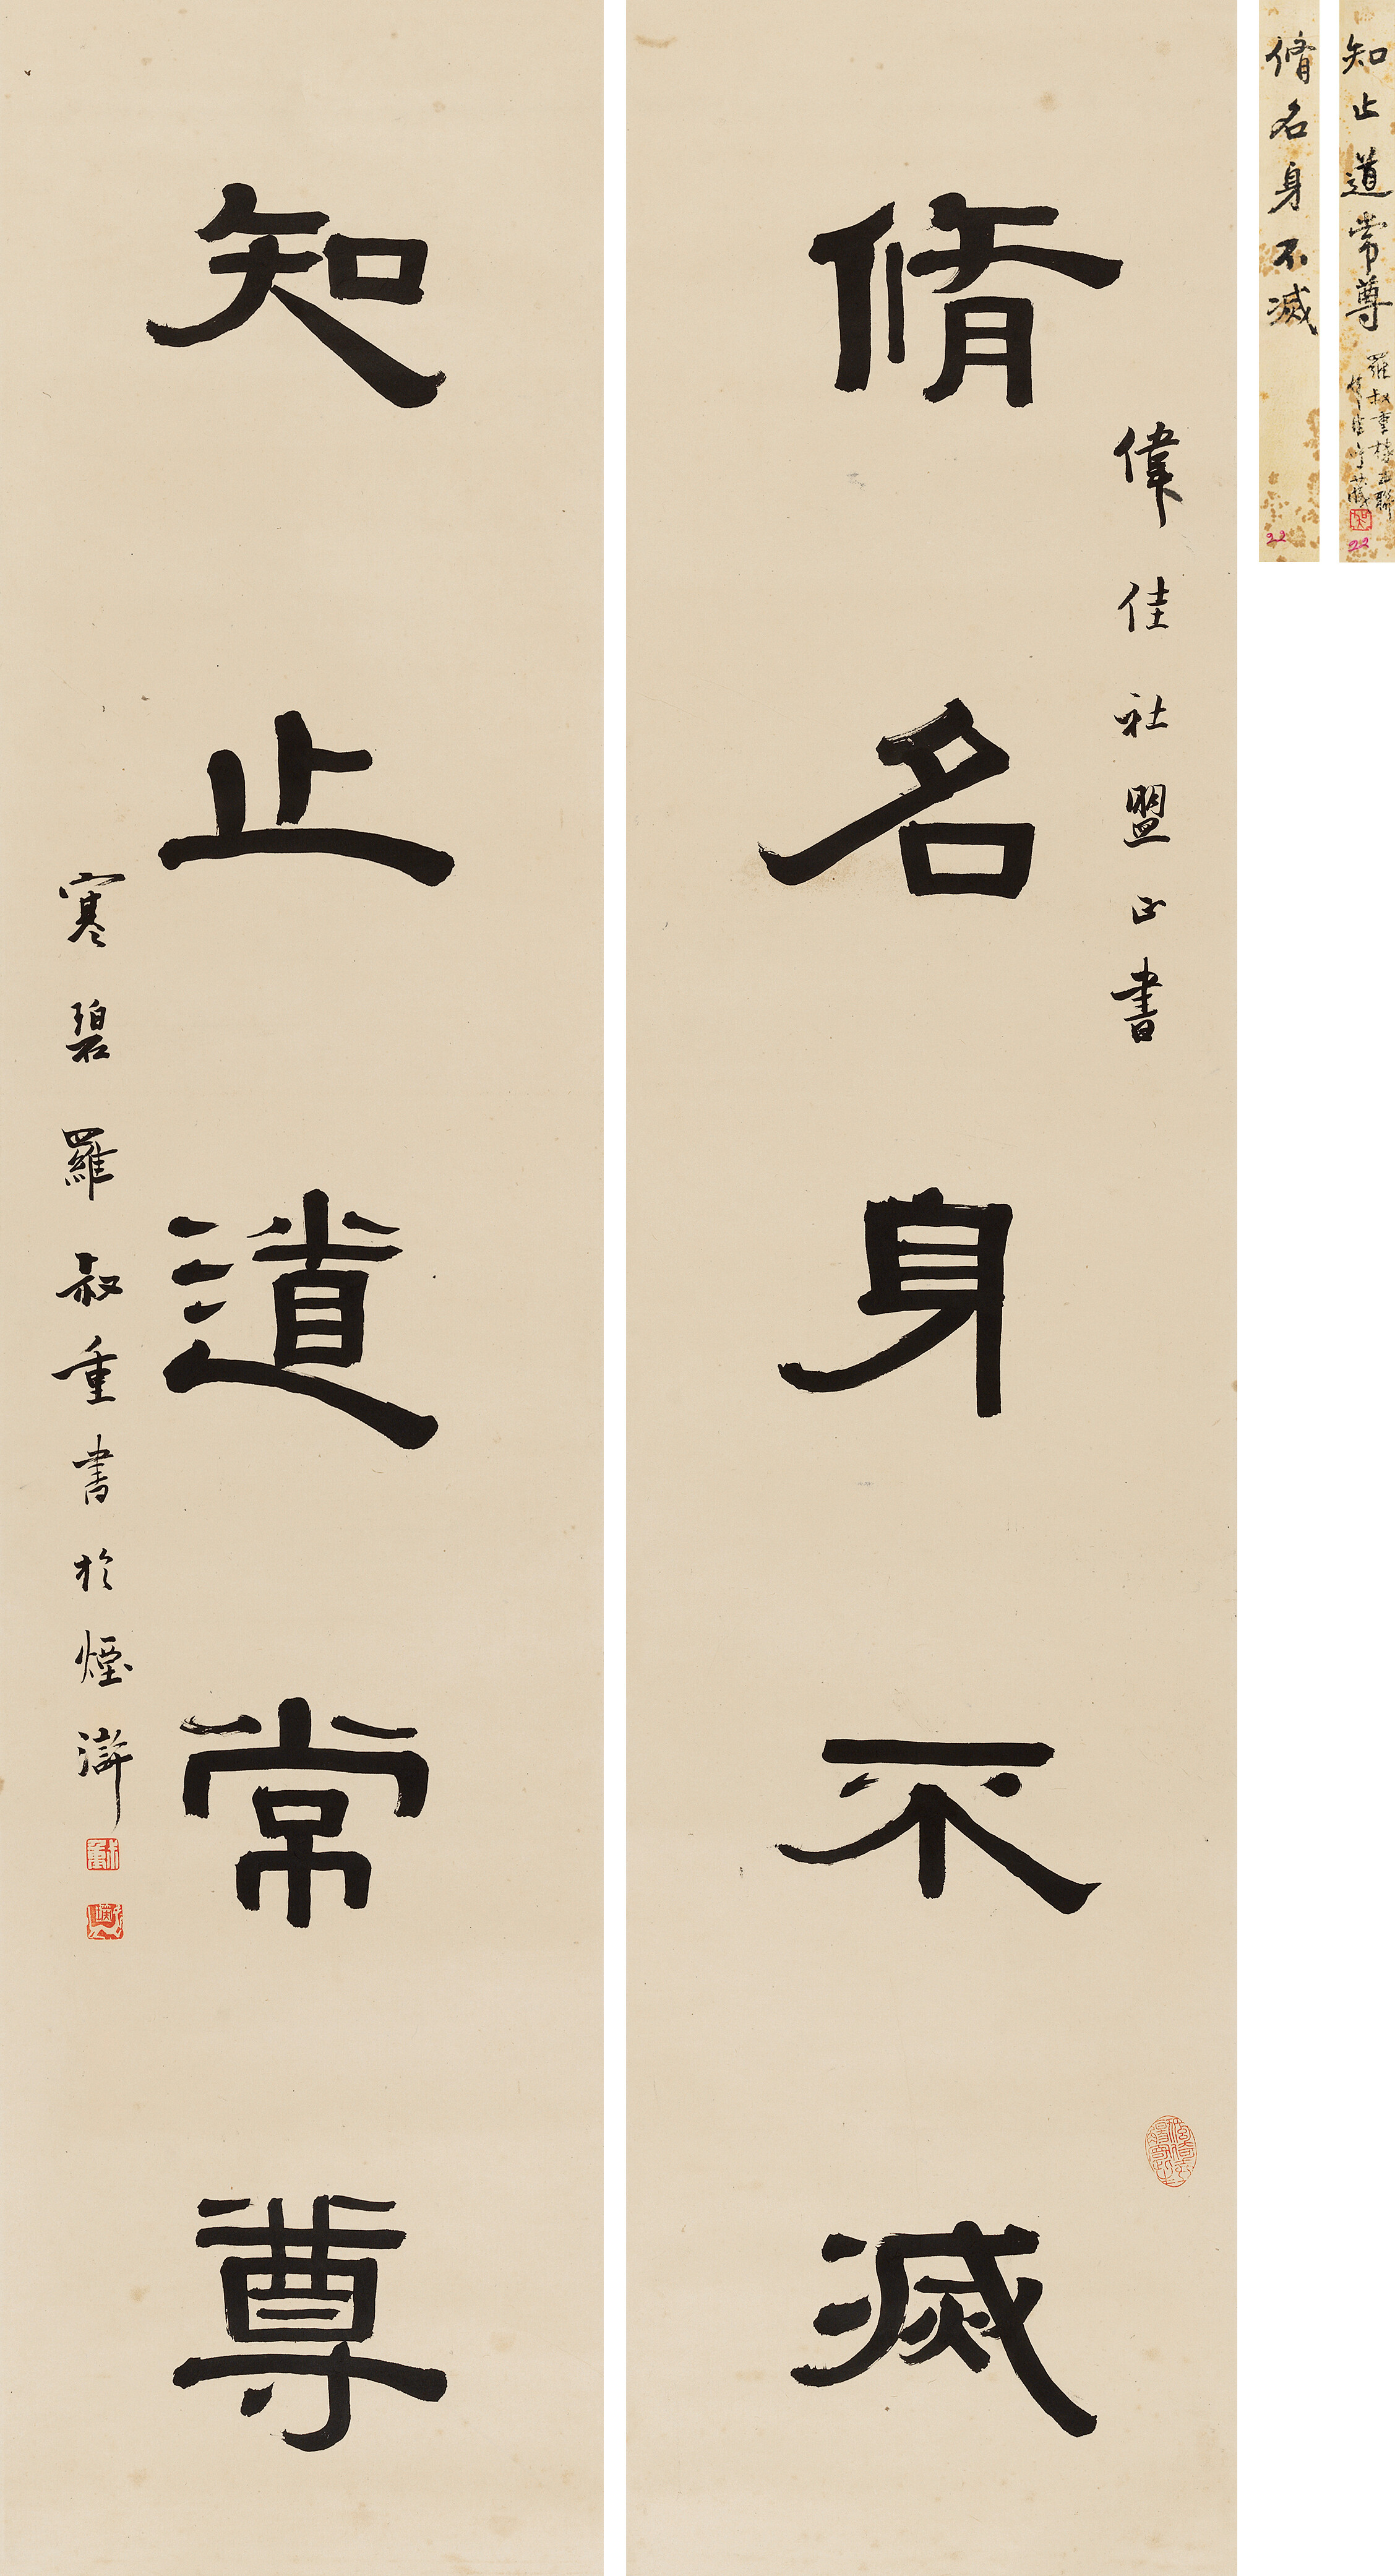 脩名身不滅
偉佳社盟正書
知止道常尊
寒碧羅叔重書於煙滸
叔重
脩名身不滅
22
知止道常尊
羅叔重隸書聯
藏
22